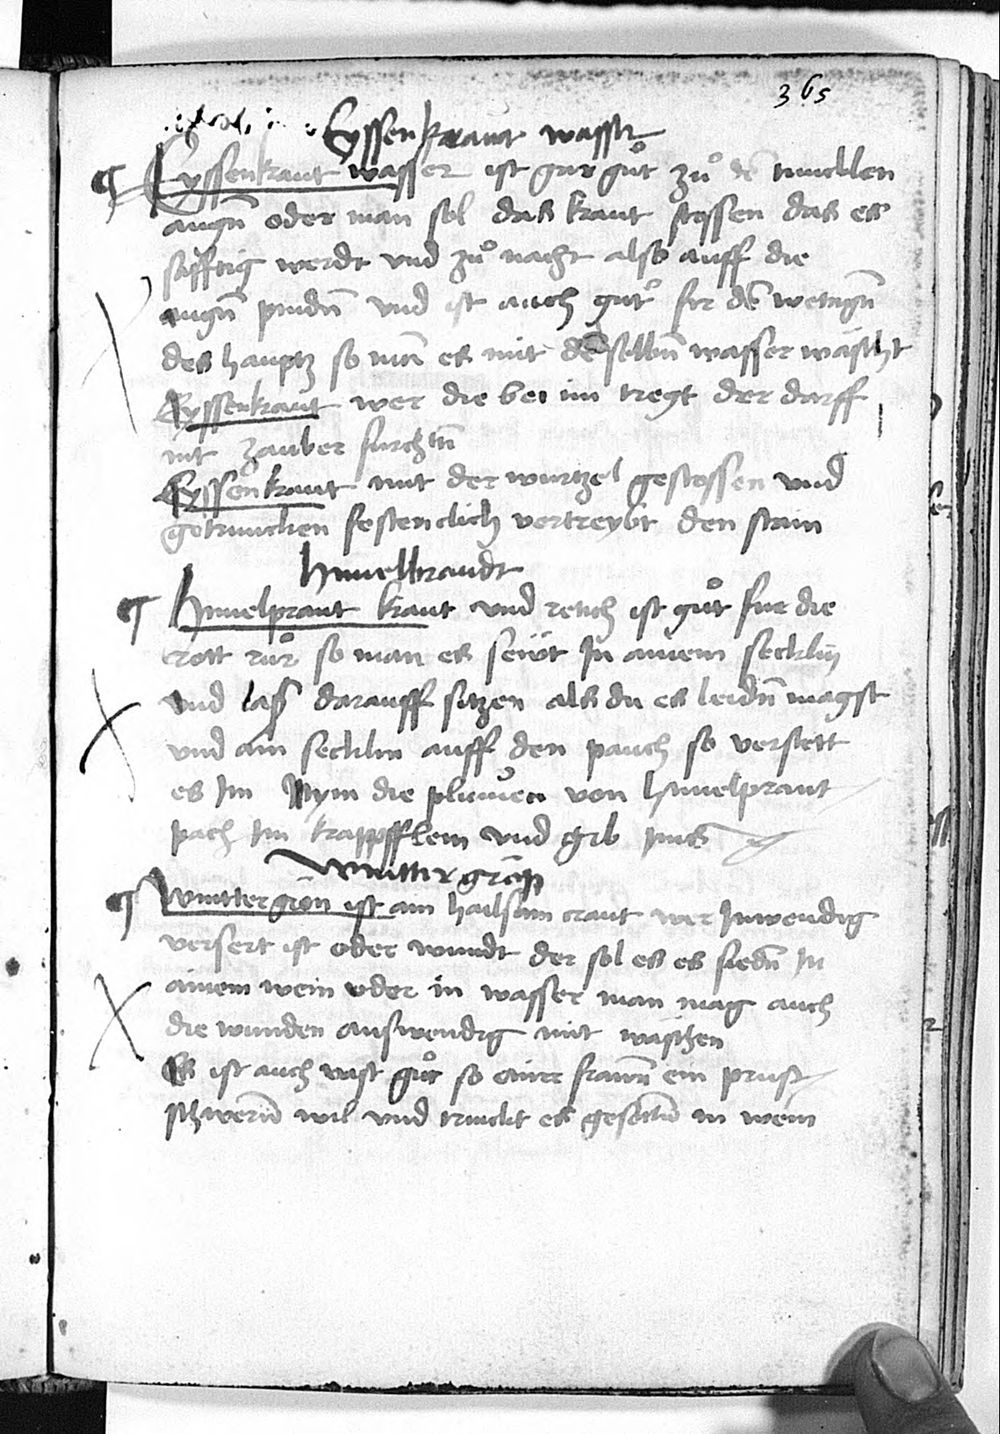 365
Eyssenkraut wasser
¶ Eyssenkraut wasser ist gar gůt zů dē tuncklen
augn̄ oder man sol das kraut stossen das es
säfftig werdt vnd zů nacht also auff die
augn̄ pindn̄ vnd ist auch gůt fur dē wetagn̄
des hauptz so mā es mit dē selbn̄ wasser wäscht
Eyssenkraut wer die bei im tregt der darff
nit zauber furchtn̄
Eyssenkraut mit der wurtzel gestossen vnd
getruncken festenclich vertreybt den stain
himelbrandt
¶ himelprant kraut vnd reuch ist gůt fur die
rott růr so man es seüdt In ainem secklin
vnd laß darauff sitzen als du es leidn̄ magst
vnd ain secklin auff den pauch so verstett
es Im Nym die plumen von himelprant
pach Im krapfflein vnd gib Ims
wintter grün
¶ Wintter grön ist ain hailsam craut wer Inwendig
versert ist oder wundt der sol es es siedn̄ In
ainem wein oder in wasser man mag auch
die wunden auswendig mit wäschen
Es ist auch vast gůt so ainer frawn̄ ein prust
schwern̄ wil vnd trinckt es gesottn̄ in wein